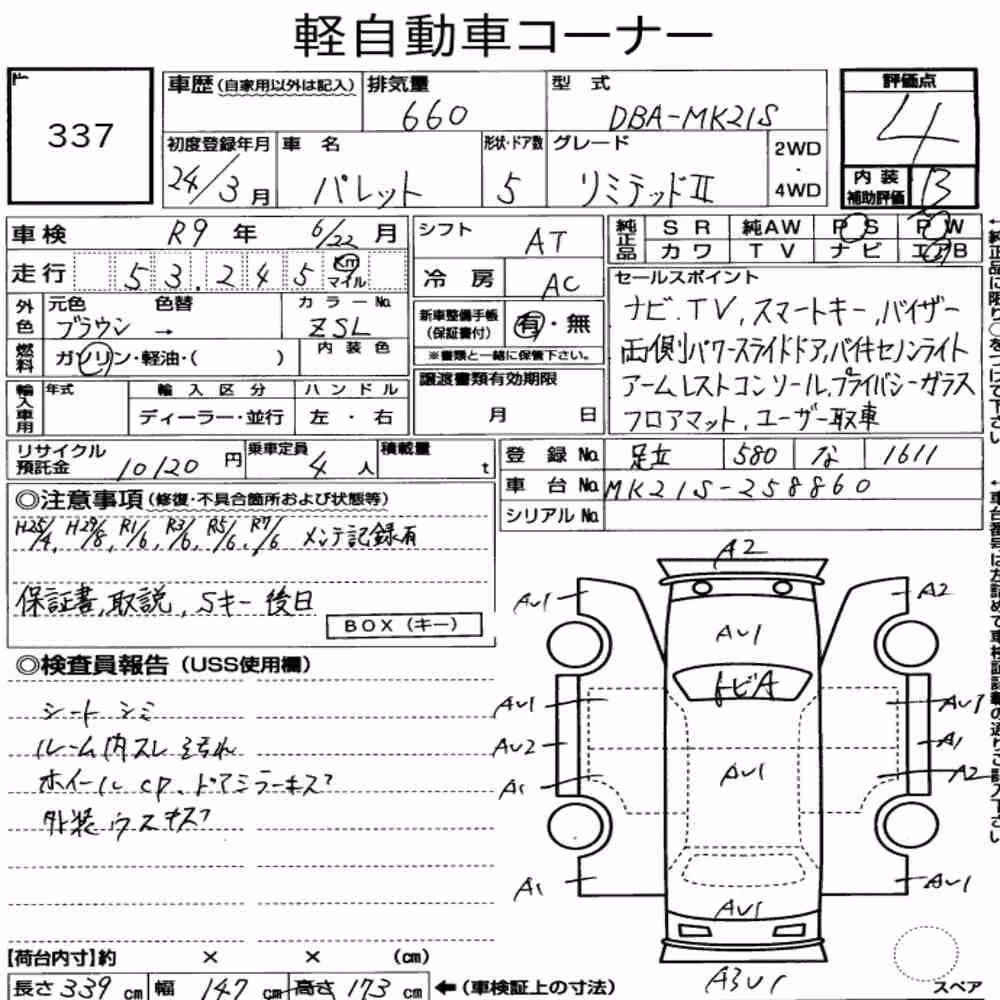 軽自動車コーナー
337
車歴(自家用以外は記入) 排気量 660 型式 DBA-MK21S
評価点 4
初度登録年月 24/3月 車名 パレット 形状・ドア数 5 グレード リミテッドⅡ 2WD・4WD
内装補助評価 B
車検 R9年 6/22月
シフト AT
純正品 SR 純AW PS PW
カワ TV ナビ エアB
走行 53.245 Km マイル
冷房 AC
セールスポイント
外色 元色 ブラウン 色替 → カラーNo. ZSL
新車整備手帳(保証書付) 有・無
※書類と一緒に保管下さい。
ナビ.TV,スマートキー,バイザー
両側パワースライドドア,バイキセノンライト
アームレストコンソール,プライバシーガラス
フロアマット,ユーザー取車
燃料 ガソリン・軽油・( ) 内装色
譲渡書類有効期限 月 日
輸入車用 年式 輸入区分 ハンドル
ディーラー・並行 左・右
リサイクル預託金 10120円 乗車定員 4人 積載量 t
登録No. 足立 580 な 1611
車台No. MK21S-258860
シリアルNo.
◎注意事項(修復・不具合箇所および状態等)
H25/4, H29/8, R1/6, R3/6, R5/6, R7/6 メンテ記録有
保証書,取説, Sキー後日
BOX(キー)
◎検査員報告(USS使用欄)
シートシミ
ルーム内スレ 汚れ
ホイールCP、ドアミラーキズ
外装ウスキズ
A2
AU1 A2
AU1
トビA
AU1
AU2 A1
A1 AU1 A2
A1 AU1
AU1
A3U1
スペア
【荷台内寸】約 × × (cm)
長さ 339cm 幅 147cm 高さ 173cm ←(車検証上の寸法)
↑純正品に限り○をつけて下さい